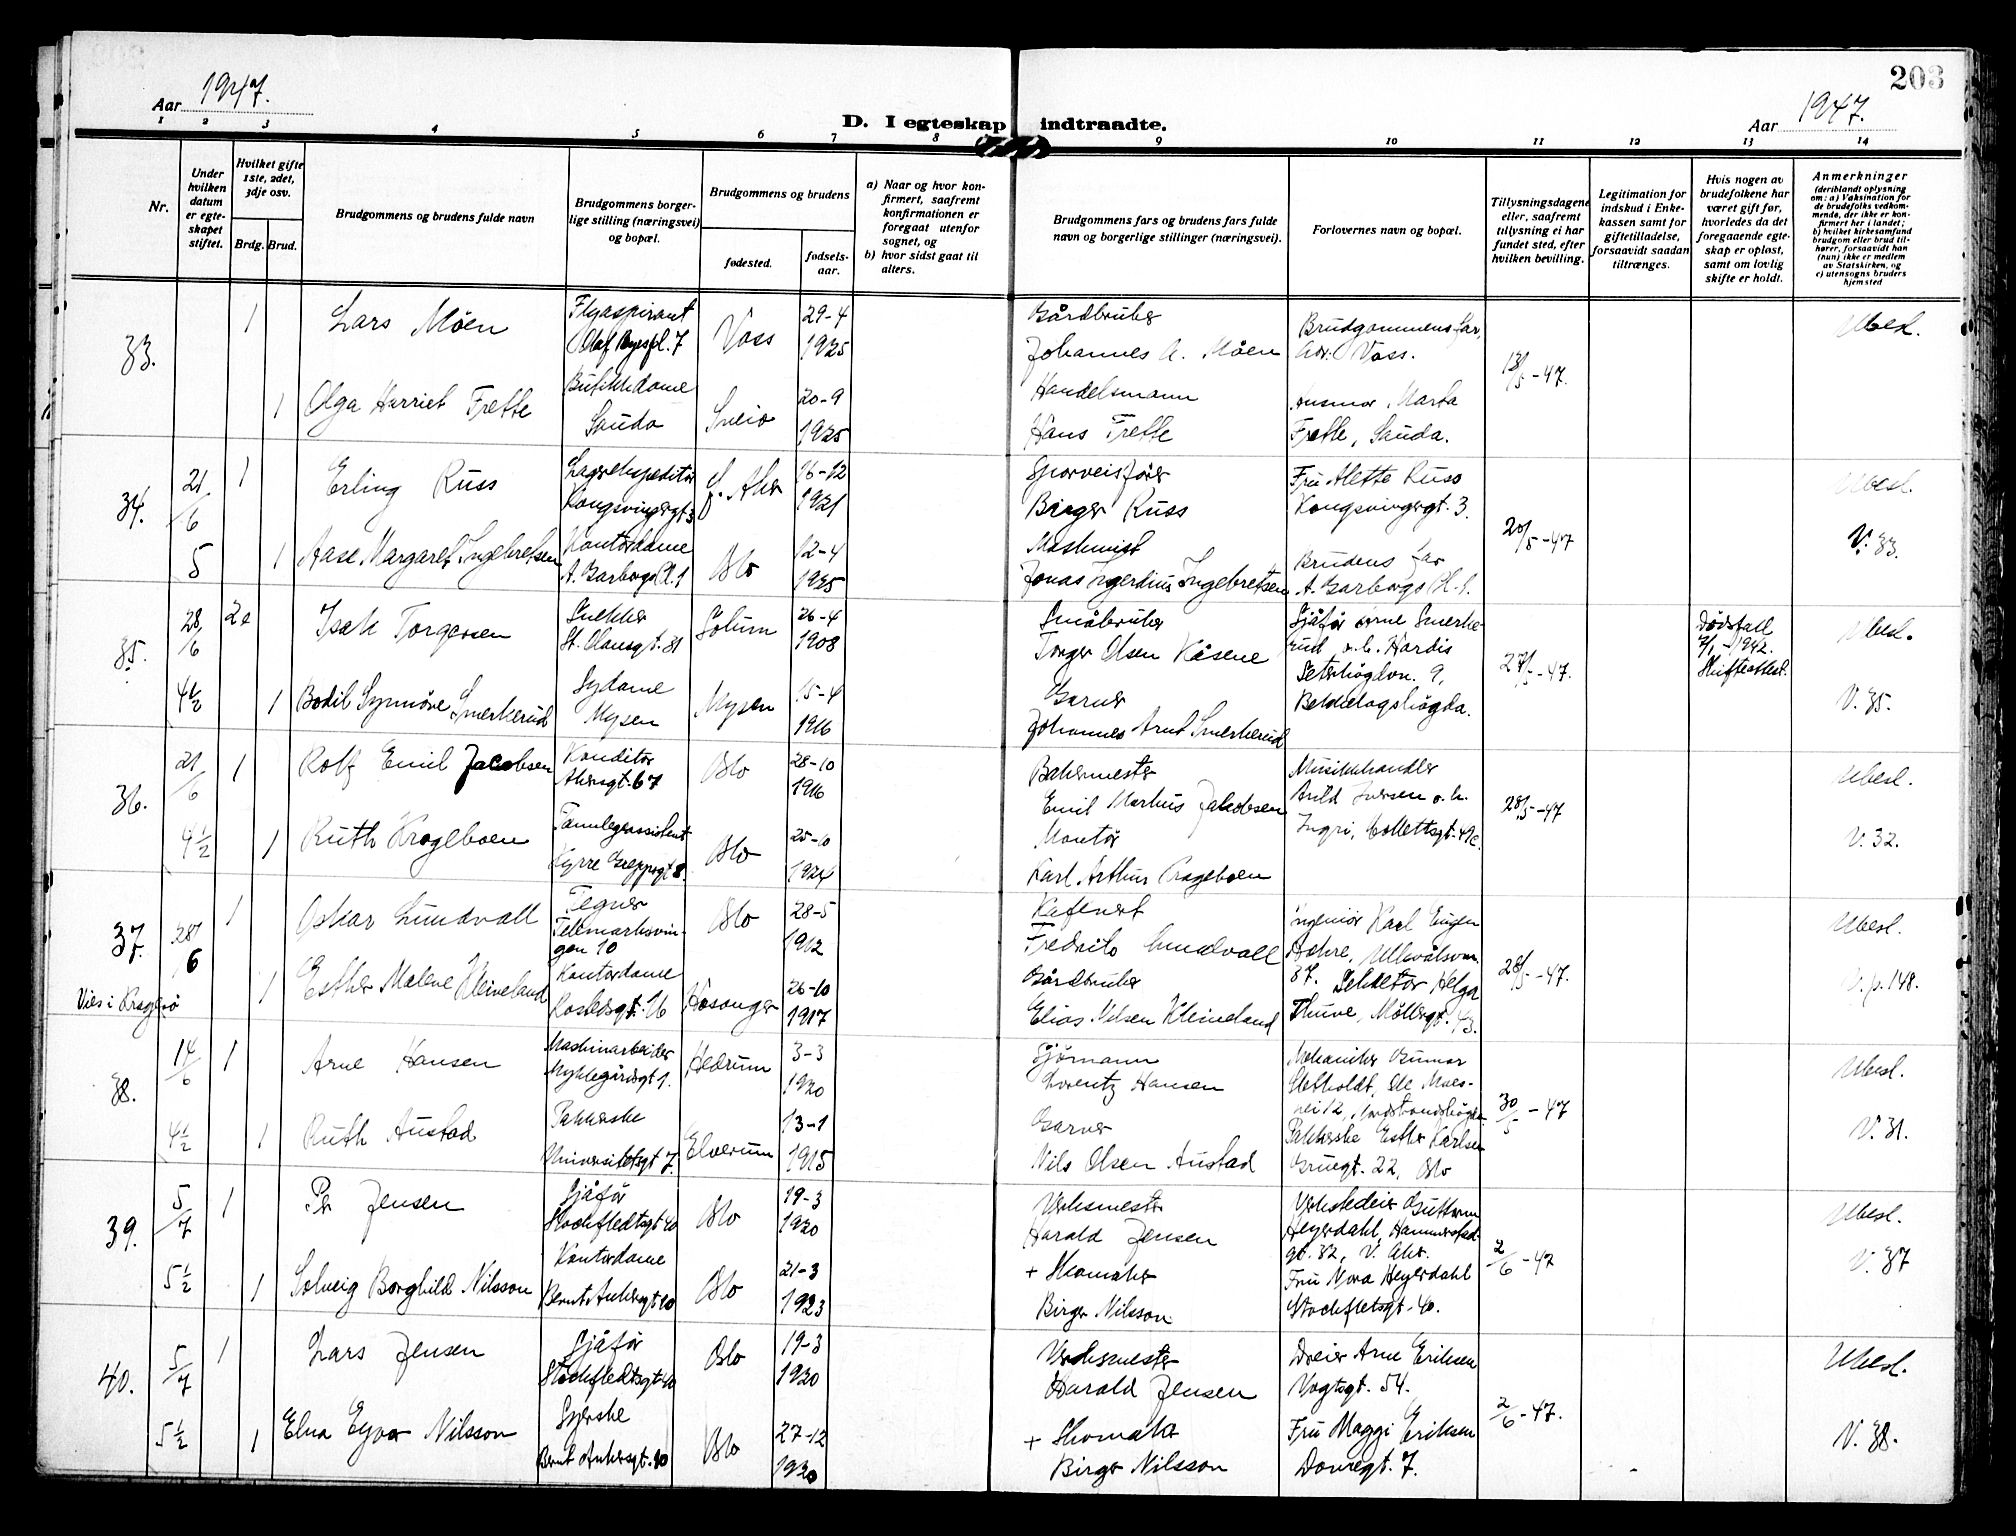 203
Aar 1947.
Aar 1947.
D. I egteskap indtraadte.
1 2 3 4 5 6 7 8 9 10 11 12 13 14
Nr.
Under hvilken datum er egteskapet stiftet.
Hvilket gifte 1ste, 2det, 3dje osv.
Brdg. Brud.
Brudgommens og brudens fulde navn
Brudgommens borgerlige stilling (næringsvei) og bopæl.
Brudgommens og brudens
fødested.
fødselsaar.
a) Naar og hvor konfirmert, saafremt konfirmationen er foregaat utenfor sognet, og
b) hvor sidst gaat til alters.
Brudgommens fars og brudens fars fulde navn og borgerlige stillinger (næringsvei).
Forlovernes navn og bopæl.
Tillysningsdagene eller, saafremt tillysning ei har fundet sted, efter hvilken bevilling.
Legitimation for indskud i Enkekassen samt for giftetilladelse, forsaavidt saadan tiltrænges.
Hvis nogen av brudefolkene har været gift før, hvorledes da det foregaaende egteskap er opløst, samt om lovlig skifte er holdt.
Anmerkninger (deriblandt oplysning om: a) Vaksination for de brudefolks vedkommende, der ikke er konfirmert her i landet; b) hvilket kirkesamfund brudgom eller brud tilhører, forsaavidt han (hun) ikke er medlem av Statskirken, og c) utensogns bruders hjemsted
33.
1 Lars Möen
Flyaspirant
Olaf Ryespl. 7
Voss
29-4
1925
Gårdbruker
Johannes A. Möen
Brudgommens far,
adr. Voss.
13/5-47.
Ubesl.
1 Olga Harriet Frette
Butikkdame
Sauda
Sveio
20-9
1925
Handelsmann
Hans Frette
Marta
Frette, Sauda.
34.
21/6
5
1 Erling Russ
Lagerekspeditör
Kongsvingergt. 3
Ö. Aker
16-12
1921
Sporveisförer
Birger Russ
Fru Alette Russ
Kongsvingergt. 3.
20/5-47
Ubesl.
V. 33.
1 Aase Margaret Ingebretsen
Kontordame
A. Garborgs Pl. 1
Oslo
12-4
1925
Maskinist
Jonas Ingerdius Ingebretsen
Brudens far
A. Garborgs Pl. 1.
35.
28/6
4½
2e Isak Torgersen
Snekker
St. Olavsgt. 31
Solum
26-4
1908
Småbruker
Torger Olsen Kåsene
Sjåför Arne Smerkerud o. h. Hardis
Seterhögdvn. 9,
Bekkelagshögda.
27/5-47.
Dödsfall
7/1-1942.
Skifteattest.
Ubesl.
V. 35.
1 Bodil Synnöve Smerkerud
Sydame
Mysen
Mysen
15-4
1916
Garver
Johannes Arnt Smerkerud
36.
21/6
4½
1 Rolf Emil Jacobsen
Konditor
Akersgt. 67
Oslo
28-10
1916
Bakermester
Emil Markus Jakobsen
Musikkhandler
Arild Iversen o. h.
Ingri, Collettsgt. 49c.
28/5-47
Ubesl.
V. 32.
1 Ruth Krageboen
Tannlegeassistent
Kyrre Greppsgt. 8.
Oslo
25-10
1924
Montör
Karl Arthur Krageboen
37.
28/6
Vies i Kragerö
1 Oskar Lundvall
Tegner
Telemarksvingen 10
Oslo
28-5
1912
Kafevert
Fredrik Lundvall
Ingeniör Karl Eugen
Aehre, Ullevålsvn.
87. Sekretær Helga
Thuve, Möllergt. 43.
28/5-47.
Ubesl.
V. p. 148.
1 Esther Malene Kleiveland
Kontordame
Rosteds gt. 16
Hosanger
26-10
1917
Gårdbruker
Elias Nilsen Kleiveland
38.
14/6
4½
1 Arne Hansen
Maskinarbeider
Myklegårdsgt 1.
Hedrum
3-3
1920
Sjömann
Lorentz Hansen
Mekaniker Gunnar
nei 12, Nordstrandshögda
Pakkerske Esther Karlsen
Gruegt. 22, Oslo
30/5-47
Ubesl.
V. 31.
1 Ruth Austad
Pakkerske
Universitetsgt 7.
Elverum
13-1
1915
Garver
Nils Olsen Austad
39.
5/7
5½
1 Per Jensen
Sjåför
Stockfledtsgt 40
Oslo
19-3
1920
Verksmester
Harald Jensen
Verkstedeier Guttorm
Heyerdahl, Hammerstadgt. 32, V. Aker.
Fru Nora Heyerdahl
Stockfletsgt. 40.
2/6-47
Ubesl.
V. 37
1 Solveig Borghild Nilsson
Kontordame
Bernt Ankersgt 10
Oslo
21-3
1923
+ Skomaker
Birger Nilsson
40.
5/7
5½
1 Lars Jensen
Sjåför
Stockfledtsgt 40
Oslo
19-3
1920
Verksmester
Harald Jensen
Dreier Arne Eriksen
Vogtsgt. 54.
2/6-47.
Ubesl.
V. 38.
1 Elna Eyvor Nilsson
Syerske
Bernt Ankersgt. 10
Oslo
27-12
1920
+ Skomaker
Birger Nilsson
Fru Maggi Eriksen
Dovregt. 7.